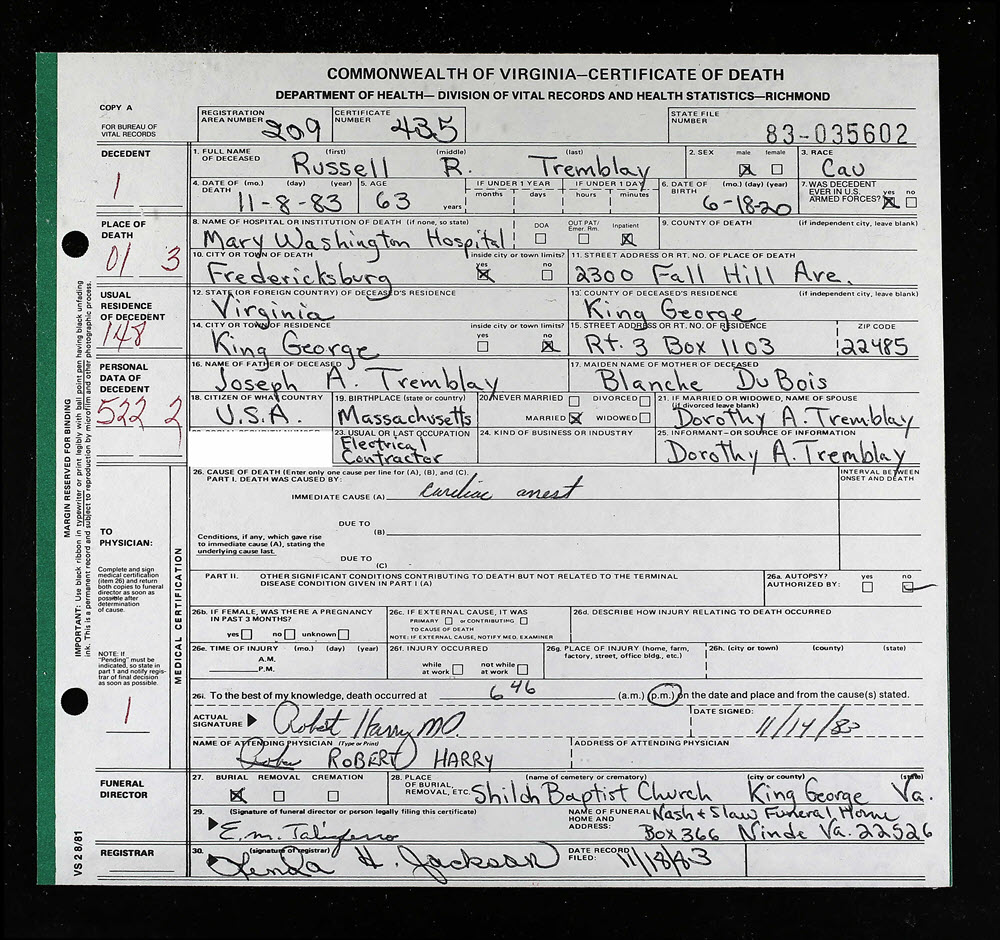 COMMONWEALTH OF VIRGINIA—CERTIFICATE OF DEATH
DEPARTMENT OF HEALTH— DIVISION OF VITAL RECORDS AND HEALTH STATISTICS—RICHMOND
COPY A
FOR BUREAU OF VITAL RECORDS
REGISTRATION AREA NUMBER 209 CERTIFICATE NUMBER 435 STATE FILE NUMBER 83-035602
DECEDENT
1
1. FULL NAME OF DECEASED (first) (middle) (last) 2. SEX male female 3. RACE
Russell R. Tremblay ☒ ☐ Cau
4. DATE OF DEATH (mo.) (day) (year) 5. AGE IF UNDER 1 YEAR months days IF UNDER 1 DAY hours minutes 6. DATE OF BIRTH (mo.) (day) (year) 7. WAS DECEDENT EVER IN U.S. ARMED FORCES? yes no
11-8-83 63 years 6-18-20 ☒ ☐
PLACE OF DEATH
01 3
8. NAME OF HOSPITAL OR INSTITUTION OF DEATH (if none, so state) DOA OUT PAT/ Emer. Rm. Inpatient 9. COUNTY OF DEATH (if independent city, leave blank)
Mary Washington Hospital ☐ ☐ ☒
10. CITY OR TOWN OF DEATH inside city or town limits? yes no 11. STREET ADDRESS OR RT. NO. OF PLACE OF DEATH
Fredericksburg ☒ ☐ 2300 Fall Hill Ave.
USUAL RESIDENCE OF DECEDENT
148
12. STATE (OR FOREIGN COUNTRY) OF DECEASED'S RESIDENCE 13. COUNTY OF DECEASED'S RESIDENCE (if independent city, leave blank)
Virginia King George
14. CITY OR TOWN OF RESIDENCE inside city or town limits? yes no 15. STREET ADDRESS OR RT. NO. OF RESIDENCE ZIP CODE
King George ☐ ☒ Rt. 3 Box 1103 22485
PERSONAL DATA OF DECEDENT
522 2
16. NAME OF FATHER OF DECEASED 17. MAIDEN NAME OF MOTHER OF DECEASED
Joseph A. Tremblay Blanche DuBois
18. CITIZEN OF WHAT COUNTRY 19. BIRTHPLACE (state or country) 20. NEVER MARRIED ☐ DIVORCED ☐ 21. IF MARRIED OR WIDOWED, NAME OF SPOUSE (if divorced leave blank)
U.S.A. Massachusetts MARRIED ☒ WIDOWED ☐ Dorothy A. Tremblay
23. USUAL OR LAST OCCUPATION 24. KIND OF BUSINESS OR INDUSTRY 25. INFORMANT—OR SOURCE OF INFORMATION
Electrical Contractor Dorothy A. Tremblay
MARGIN RESERVED FOR BINDING
IMPORTANT: Use black ribbon in typewriter or print legibly with ball point pen having black unfading ink. This is a permanent record and subject to reproduction by microfilm and other photographic process.
TO PHYSICIAN:
Complete and sign medical certification (item 26) and return both copies to funeral director as soon as possible after determination of cause.
NOTE: If "Pending" must be indicated, so state in part 1 and notify registrar of final decision as soon as possible.
1
MEDICAL CERTIFICATION
26. CAUSE OF DEATH (Enter only one cause per line for (A), (B), and (C). INTERVAL BETWEEN ONSET AND DEATH
PART I. DEATH WAS CAUSED BY:
IMMEDIATE CAUSE (A) cardiac arrest
DUE TO (B)
Conditions, if any, which gave rise to immediate cause (A), stating the underlying cause last.
DUE TO (C)
PART II. OTHER SIGNIFICANT CONDITIONS CONTRIBUTING TO DEATH BUT NOT RELATED TO THE TERMINAL DISEASE CONDITION GIVEN IN PART I (A) 26a. AUTOPSY? AUTHORIZED BY: yes ☐ no ☑
26b. IF FEMALE, WAS THERE A PREGNANCY IN PAST 3 MONTHS? yes ☐ no ☐ unknown ☐
26c. IF EXTERNAL CAUSE, IT WAS PRIMARY ☐ or CONTRIBUTING ☐ TO CAUSE OF DEATH
NOTE: IF EXTERNAL CAUSE, NOTIFY MED. EXAMINER
26d. DESCRIBE HOW INJURY RELATING TO DEATH OCCURRED
26e. TIME OF INJURY (mo.) (day) (year) A.M. P.M.
26f. INJURY OCCURRED while at work ☐ not while at work ☐
26g. PLACE OF INJURY (home, farm, factory, street, office bldg., etc.)
26h. (city or town) (county) (state)
26i. To the best of my knowledge, death occurred at 6 46 (a.m.) (p.m.) on the date and place and from the cause(s) stated.
ACTUAL SIGNATURE Robert Harry MD DATE SIGNED: 11/14/83
NAME OF ATTENDING PHYSICIAN (Type or Print) ADDRESS OF ATTENDING PHYSICIAN
ROBERT HARRY
FUNERAL DIRECTOR
27. BURIAL REMOVAL CREMATION 28. PLACE OF BURIAL, REMOVAL, ETC. (name of cemetery or crematory) (city or county) (state)
☒ ☐ ☐ Shiloh Baptist Church King George Va.
29. (Signature of funeral director or person legally filing this certificate) NAME OF FUNERAL HOME AND ADDRESS: Nash & Slaw Funeral Home
E.m. Taliaferro Box 366 Ninde Va. 22526
REGISTRAR
30. (signature of registrar) DATE RECORD FILED:
Lenda H. Jackson 11/18/83
VS 2 8/81